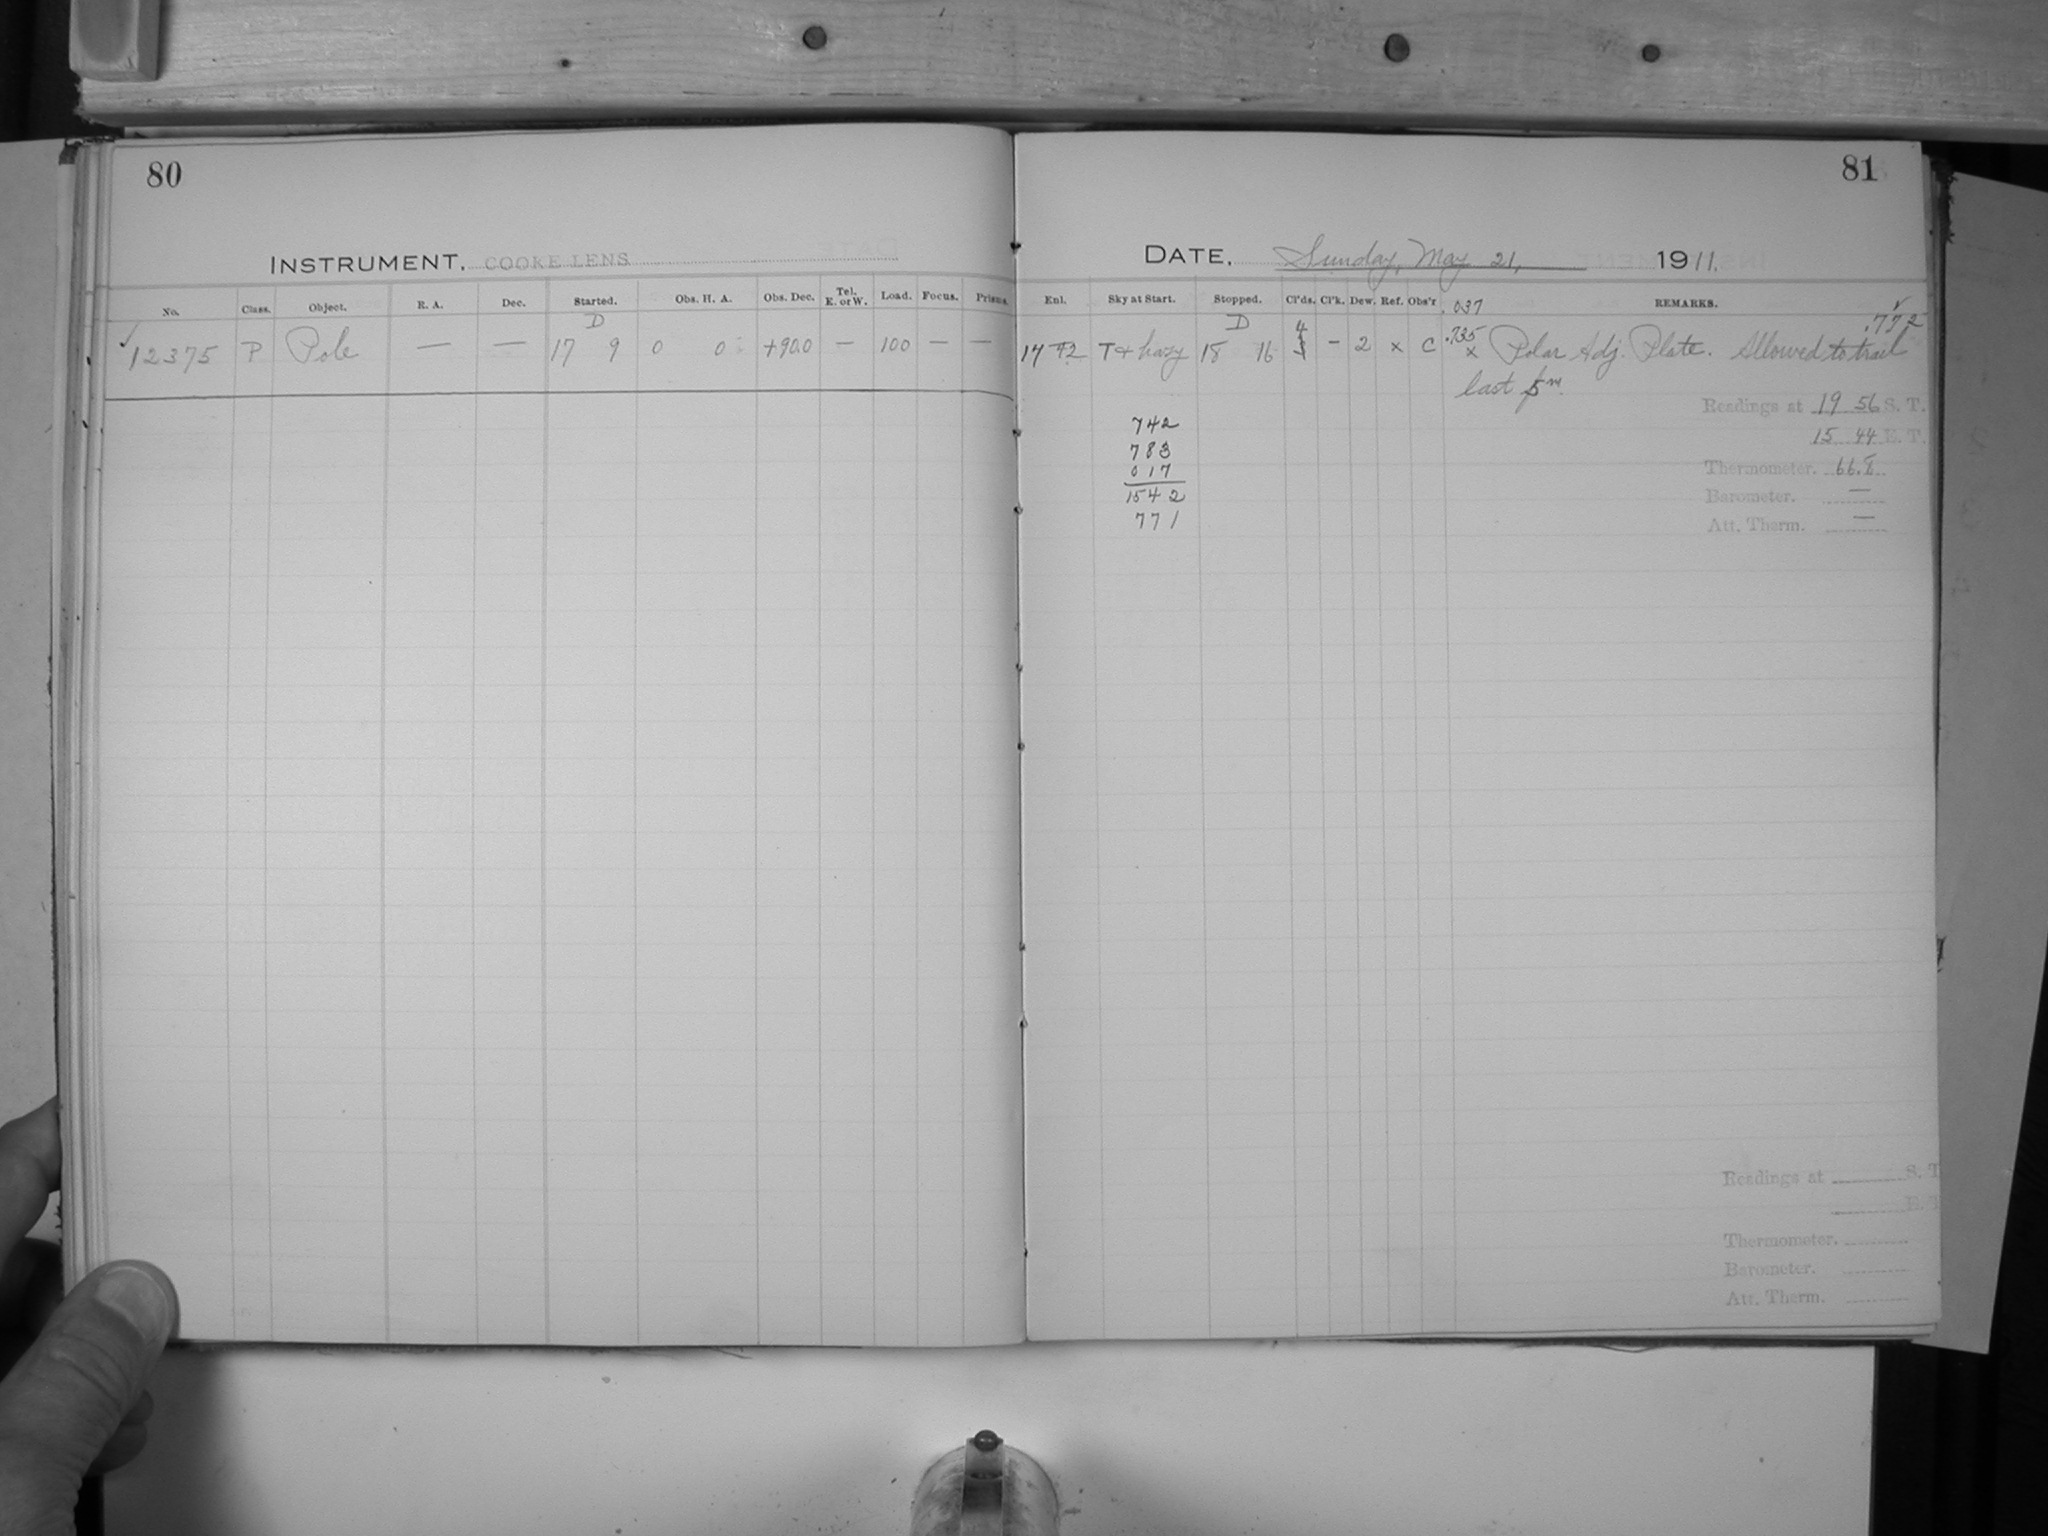 80
INSTRUMENT, COOKE LENS
No. Class. Object. R. A. Dec. Started. Obs. H. A. Obs. Dec. Tel. E. or W. Load. Focus. Prisms.
D
✓ 12375 P Pole — — 17 9 0 0 +90.0 — 100 — —
81
DATE, Sunday, May 21, 1911.
Enl. Sky at Start. Stopped. Cl'ds. Cl'k. Dew. Ref. Obs'r .037 REMARKS.
D 4 .735 ✓ .772
17 42 T + hazy 18 16 – 2 x C x Polar Adj. Plate. Allowed to trail
last 5m.
Readings at 19 56 S. T.
15 44 E. T.
Thermometer. 66.8
Barometer. —
Att. Therm. —
742
783
017
1542
771
Readings at S. T
E. T
Thermometer.
Barometer.
Att. Therm.